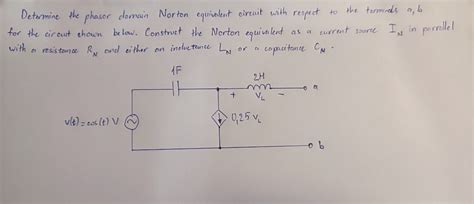 Determine the phasor domain Norton equivalent circuit with respect to the terminals a, b
for the circuit shown below. Construct the Norton equivalent as a current source I_N in parallel
with a resistance R_N and either an inductance L_N or a capacitance C_N.
1F
2H
a
+ V_L -
v(t) = cos(t) V
0,25 V_L
b